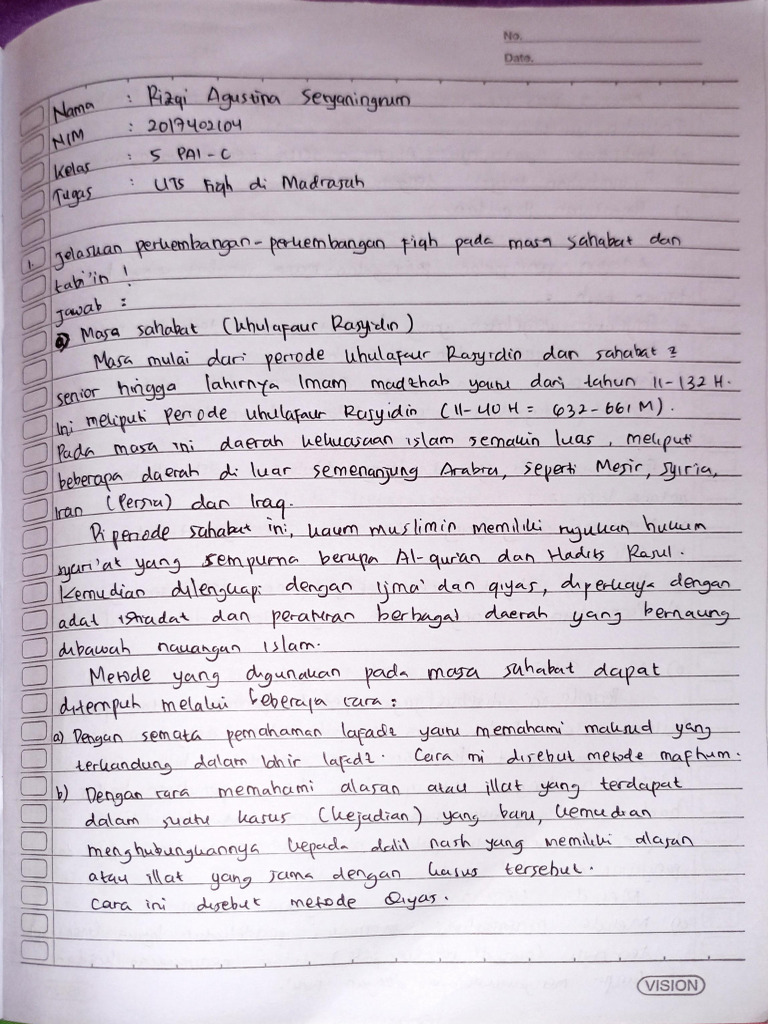 No.
Date.
Nama : Rizqi Agustina Setyaningrum
NIM : 2017402104
Kelas : 5 PAI-C
Tugas : UTS Fiqh di Madrasah
1. Jelaskan perkembangan-perkembangan fiqh pada masa sahabat dan
tabi'in !
Jawab :
a) Masa sahabat (Khulafaur Rasyidin)
Masa mulai dari periode Khulafaur Rasyidin dan sahabat2
senior hingga lahirnya Imam madzhab yaitu dari tahun 11-132 H.
Ini meliputi periode Khulafaur Rasyidin (11-40 H = 632-661 M).
Pada masa ini daerah kekuasaan islam semakin luas, meliputi
beberapa daerah di luar semenanjung Arabia, seperti Mesir, Syiria,
Iran (Persia) dan Iraq.
Di periode sahabat ini, kaum muslimin memiliki rujukan hukum
syari'at yang sempurna berupa Al-qur'an dan Hadits Rasul.
Kemudian dilengkapi dengan ijma' dan qiyas, diperkaya dengan
adat istiadat dan peraturan berbagai daerah yang bernaung
dibawah naungan islam.
Metode yang digunakan pada masa sahabat dapat
ditempuh melalui beberapa cara :
a) Dengan semata pemahaman lafadz yaitu memahami maksud yang
terkandung dalam lahir lafadz. Cara ini disebut metode mafhum.
b) Dengan cara memahami alasan atau illat yang terdapat
dalam suatu kasus (kejadian) yang baru, kemudian
menghubungkannya kepada dalil nash yang memiliki alasan
atau illat yang sama dengan kasus tersebut.
Cara ini disebut metode Qiyas.
VISION